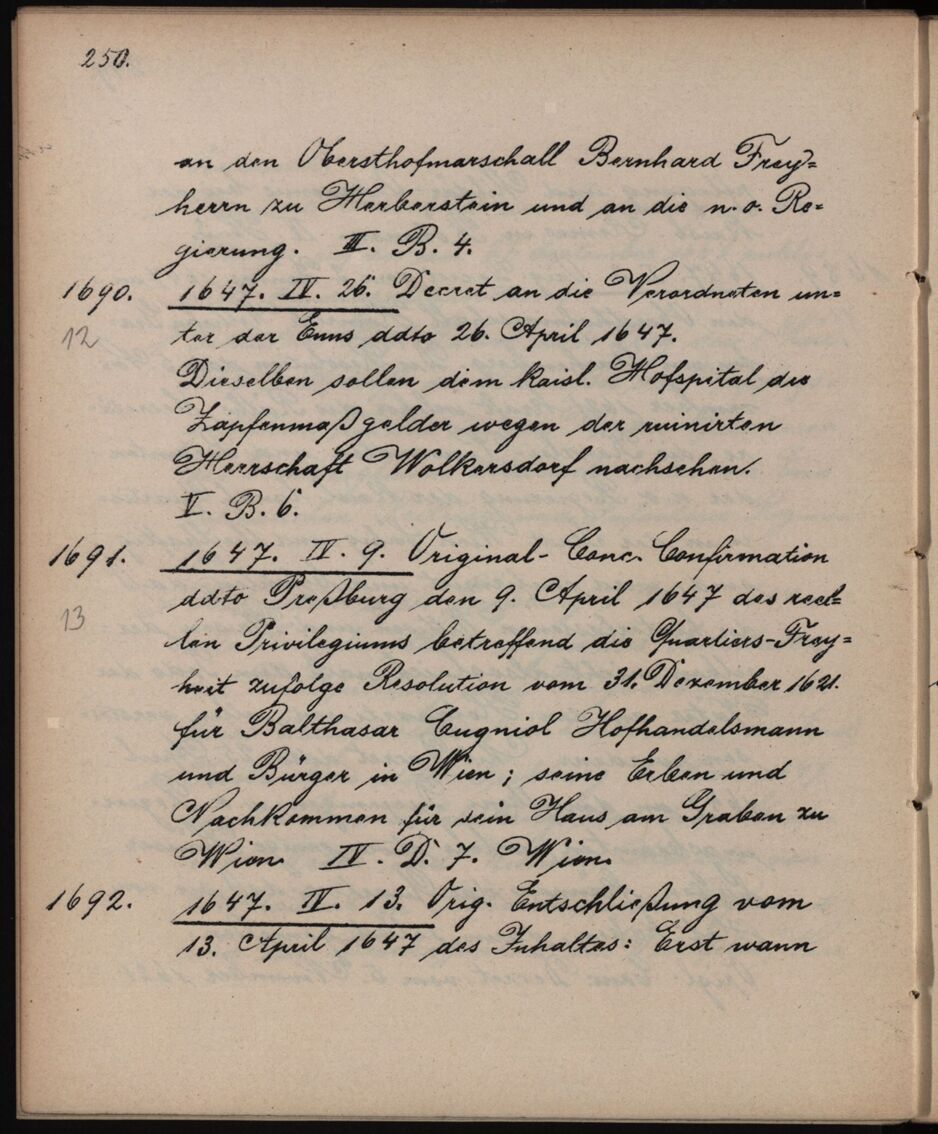 250.
an den Obersthofmarschall Bernhard Frey=
herrn zu Herberstein und an die n. o. Re=
gierung. III. B. 4.
1690. 1647. IV. 26. Decret an die Verordneten un=
12 ter der Enns ddto 26. April 1647.
Dieselben sollen dem kaisl. Hofspital die
Zapfenmaßgelder wegen der ruinirten
Herrschaft Wolkersdorf nachsehen.
V. B. 6.
1691. 1647. IV. 9. Original-Conc. Confirmation
ddto Preßburg den 9. April 1647 des
13 Privilegiums betreffend die Quartiers-Frey=
heit zufolge Resolution vom 31. Dezember 1621.
für Balthasar Cugniol Hofhandelsmann
und Bürger in Wien; seine Erben und
Nachkommen für sein Haus am Graben zu
Wien IV. D. 7. Wien.
1692. 1647. IV. 13. Orig. Entschließung vom
13. April 1647 des Inhaltes: Erst wann